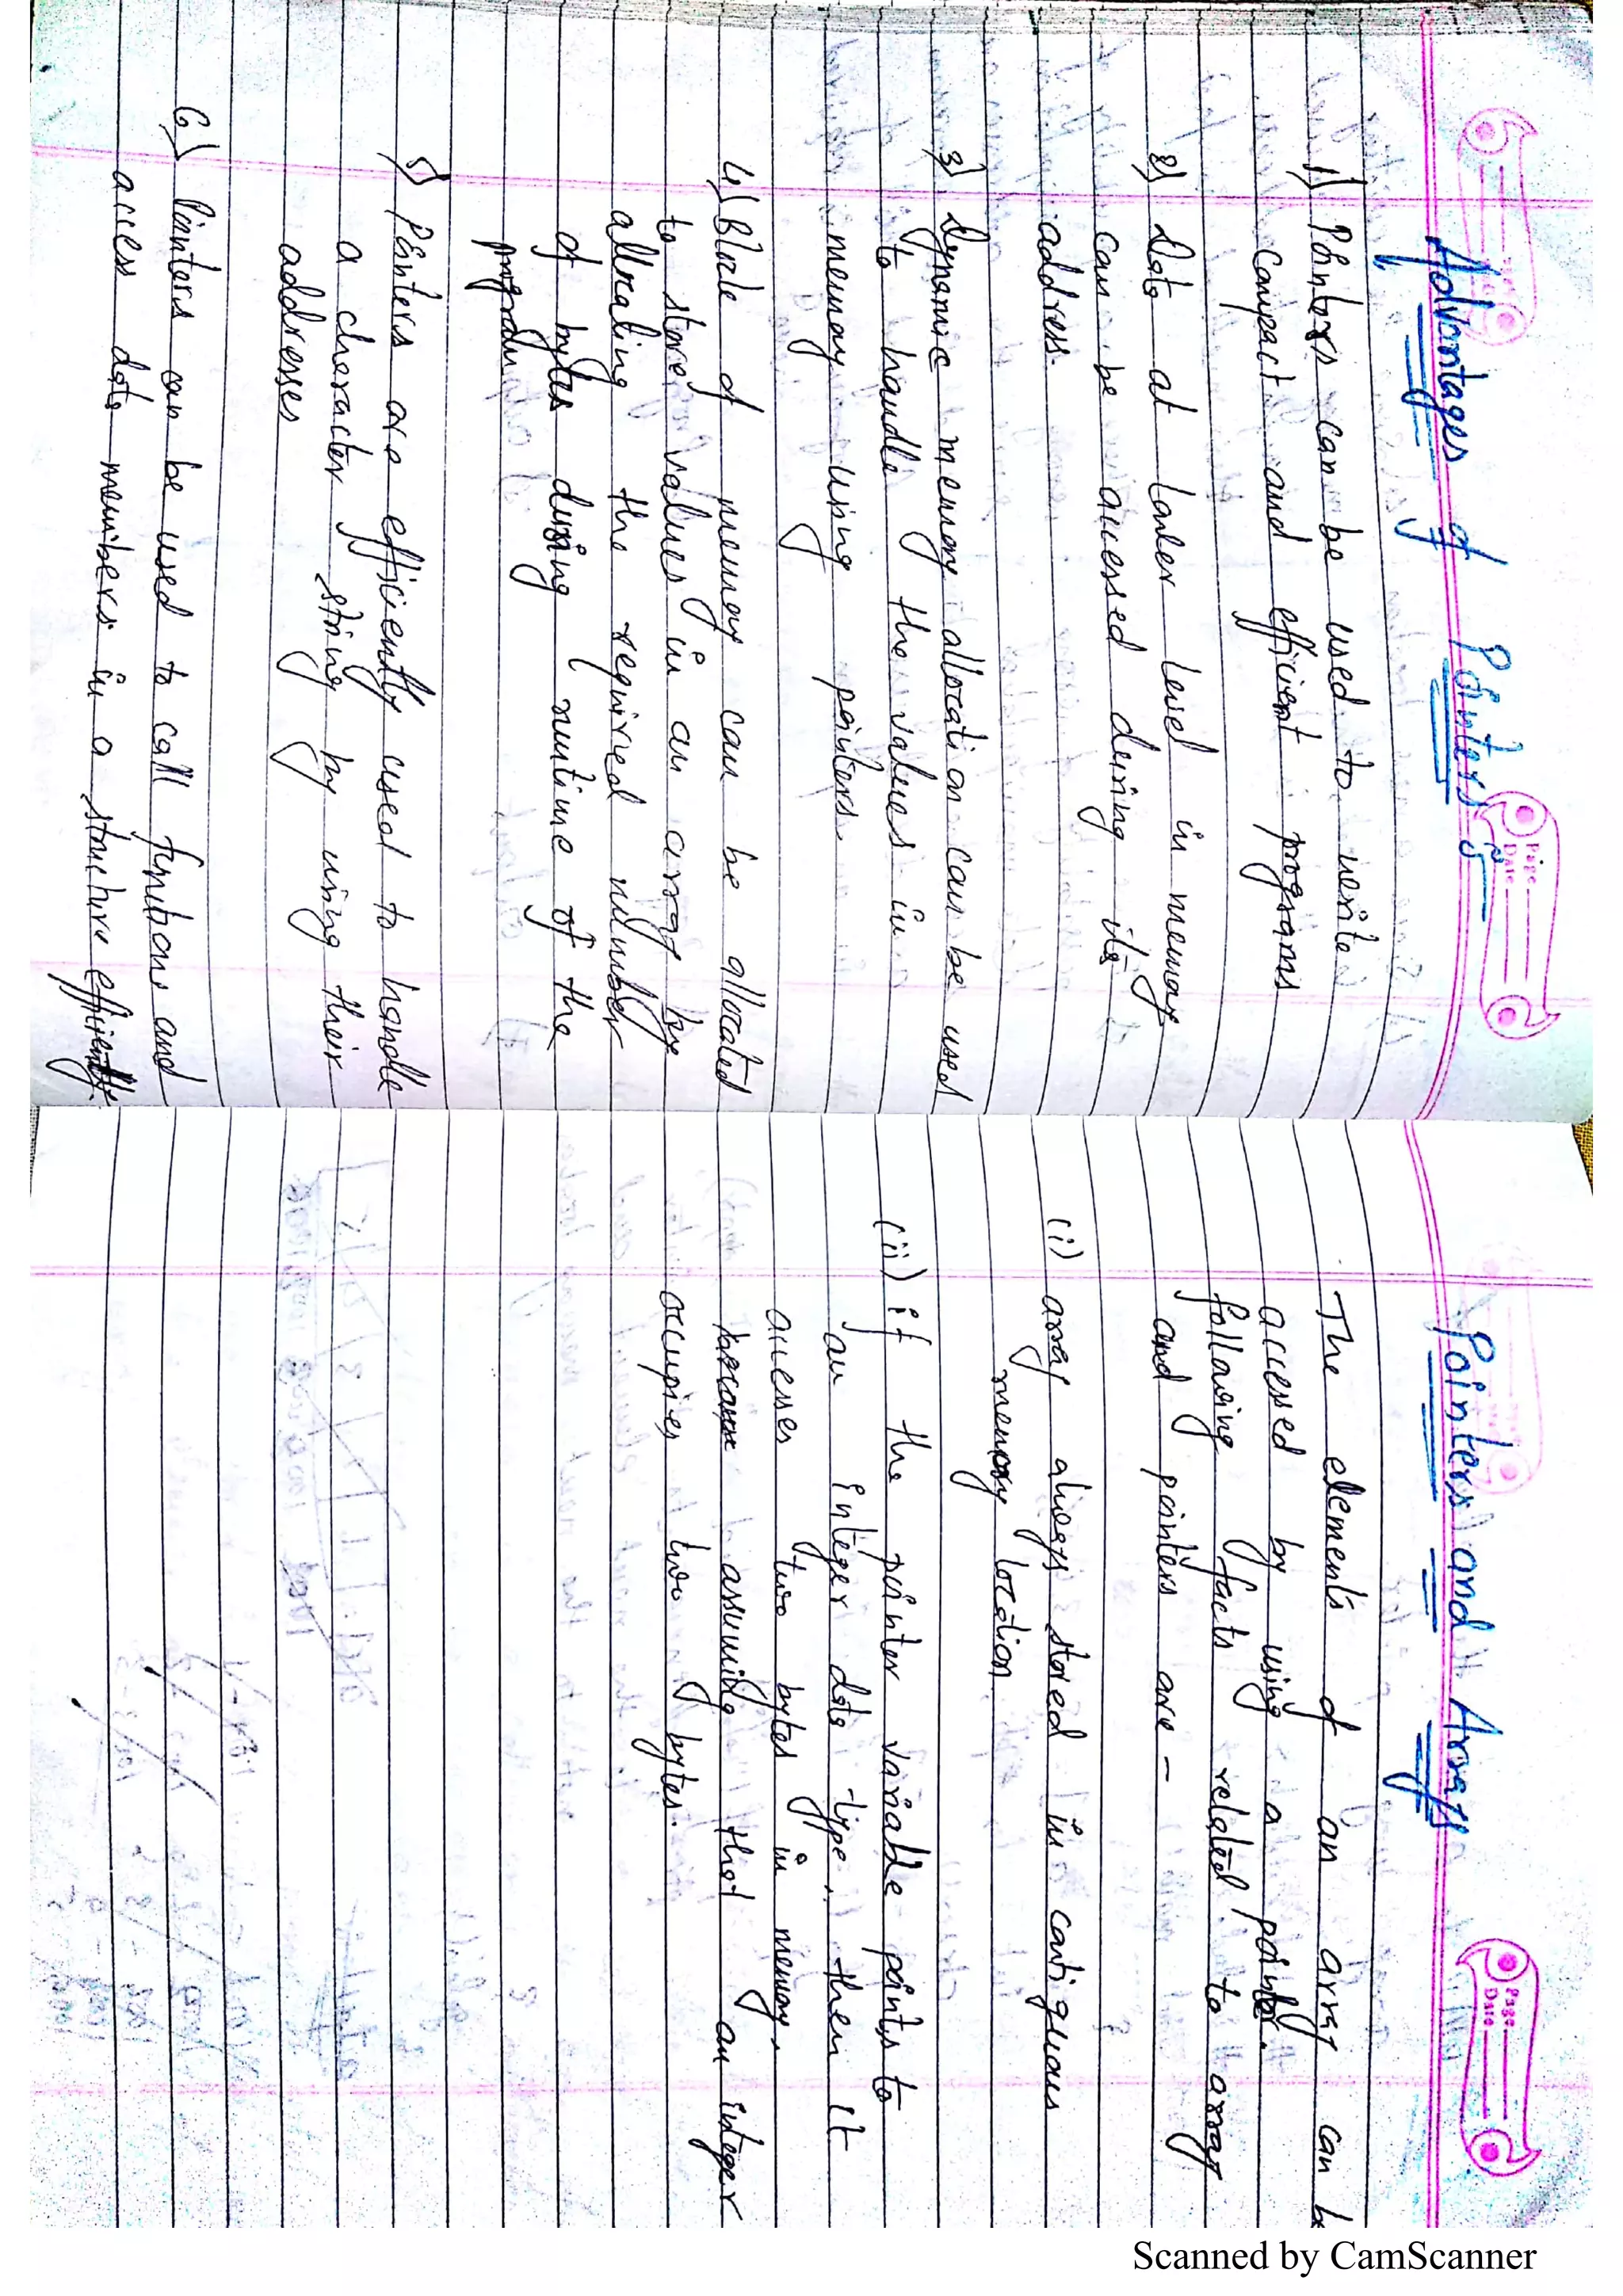 Advantages of Pointers
1) Pointers can be used to write
compact and efficient programs
2) Data at lower level in memory
can be accessed during its
address.
3) Dynamic memory allocation can be used
to handle the values in
memory using pointers.
4) Block of memory can be allocated
to store values in an array by
allocating the required number
of bytes during runtime of the
5) Pointers are efficiently used to handle
a character string by using their
addresses
6) Pointers can be used to call functions and
access data members in a structure efficiently.
Page
Date
Pointers and Arrays
The elements of an array can be
accessed by using a pointer.
following facts related to array
and pointers are -
(i) array always stored in contiguous
memory location
(ii) if the pointer variable points to
an integer data type, then it
accesses two bytes in memory.
assuming that an integer
occupies two bytes.
Page
Date
Scanned by CamScanner